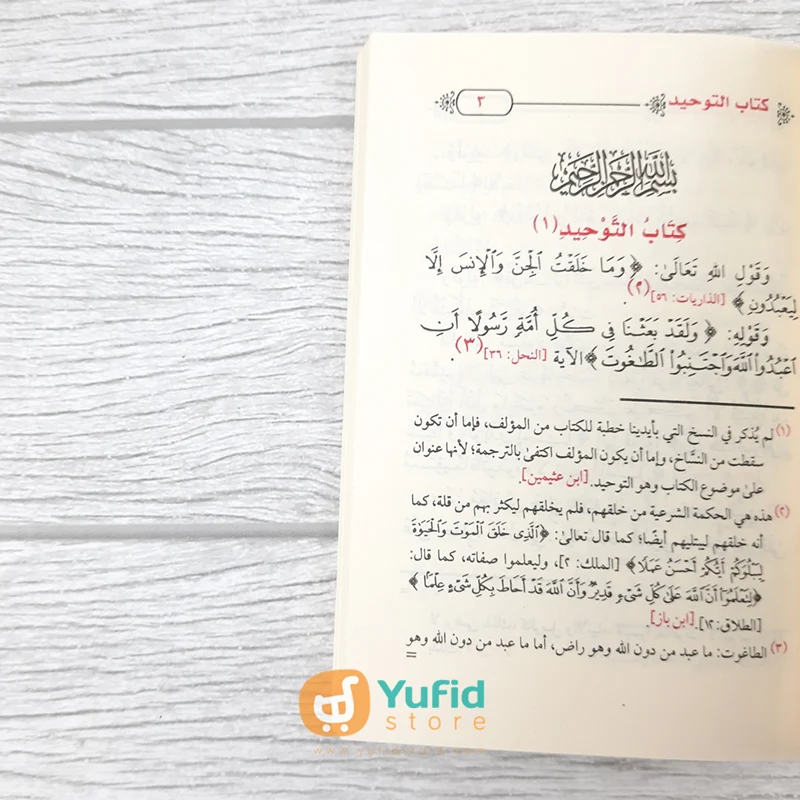 كتاب التوحيد
٣
بسم الله الرحمن الرحيم
كِتَابُ التَّوْحِيدِ(١)
وَقَوْلِ اللهِ تَعَالَىٰ: ﴿ وَمَا خَلَقْتُ ٱلْجِنَّ وَٱلْإِنسَ إِلَّا
لِيَعْبُدُونِ ﴾ [الذاريات: ٥٦](٢).
وَقَوْلِهِ: ﴿ وَلَقَدْ بَعَثْنَا فِي كُلِّ أُمَّةٍ رَّسُولًا أَنِ
ٱعْبُدُواْ ٱللَّهَ وَٱجْتَنِبُواْ ٱلطَّٰغُوتَ ﴾ الآية [النحل: ٣٦](٣).
(١) لم يُذكر في النسخ التي بأيدينا خطبة للكتاب من المؤلف، فإما أن تكون
سقطت من النسَّاخ، وإما أن يكون المؤلف اكتفىٰ بالترجمة؛ لأنها عنوان
علىٰ موضوع الكتاب وهو التوحيد. [ابن عثيمين].
(٢) هذه هي الحكمة الشرعية من خلقهم، فلم يخلقهم ليكثر بهم من قلة، كما
أنه خلقهم ليبتليهم أيضًا؛ كما قال تعالىٰ: ﴿ٱلَّذِى خَلَقَ ٱلْمَوْتَ وَٱلْحَيَوٰةَ
لِيَبْلُوَكُمْ أَيُّكُمْ أَحْسَنُ عَمَلًا﴾ [الملك: ٢]، وليعلموا صفاته، كما قال:
﴿لِتَعْلَمُوٓاْ أَنَّ ٱللَّهَ عَلَىٰ كُلِّ شَىْءٍ قَدِيرٌ وَأَنَّ ٱللَّهَ قَدْ أَحَاطَ بِكُلِّ شَىْءٍ عِلْمًا﴾
[الطلاق: ١٢]. [ابن باز].
(٣) الطاغوت: ما عبد من دون الله وهو راض، أما ما عبد من دون الله وهو
=
Yufid
store